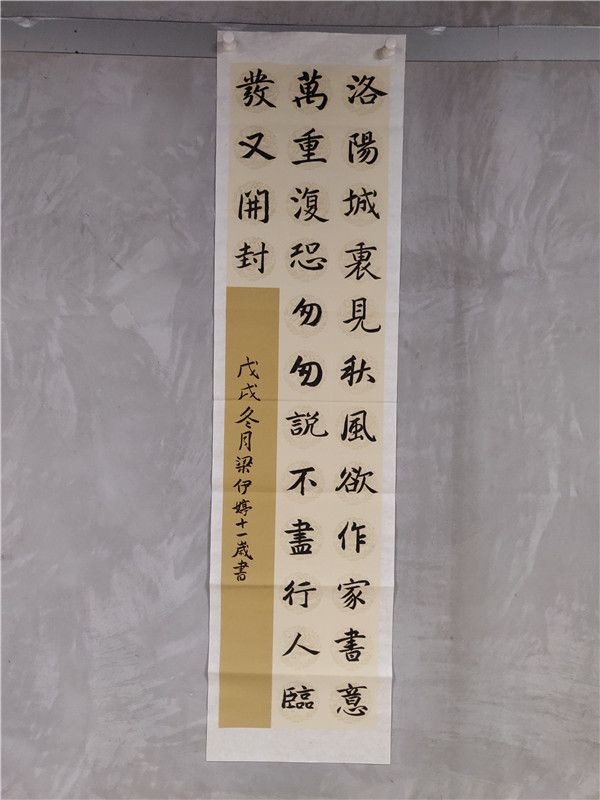 洛陽城裏見秋風欲作家書意
萬重復恐匆匆説不盡行人臨
發又開封
戊戌冬月梁伊婷十一歲書